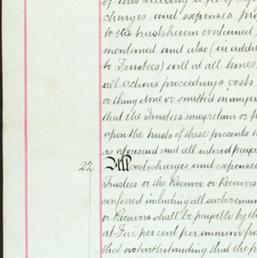 of
charges and expenses pro
to the trusts herein contained
mentioned and also (in addit
to Trustees) will at all times
all actions proceedings costs
or thing done or omitted in any
that the Trustees may retain or
upon the trusts of these presents
as aforesaid and all interest
22 All costs charges and expenses
Trustees or the Receiver or Receivers
conferred including all such
or Receivers shall be payable by the
at Five per cent per annum from
that notwithstanding that the